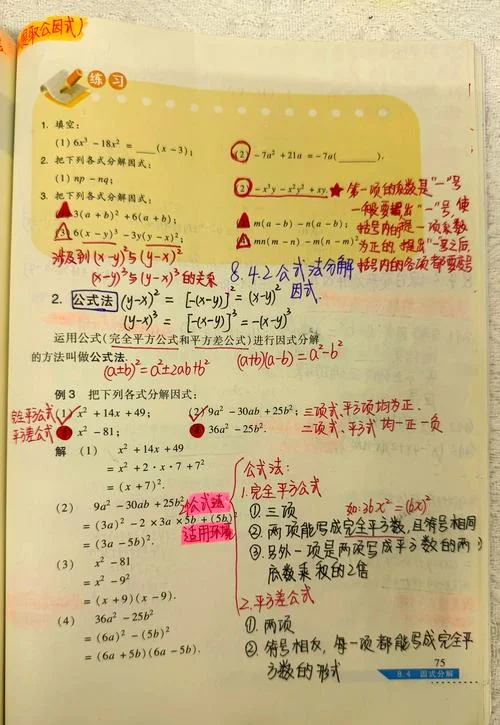 提取公因式)
练习
1. 填空:
(1) 6x³-18x²=____(x-3); (2) -7a²+21a=-7a(____).
2. 把下列各式分解因式:
(1) np-nq; (2) -x³y-x²y²+xy. ★ 第一项的系数是“-”号
3. 把下列各式分解因式: 一般要提出“-”号使
3(a+b)²+6(a+b); m(a-b)-n(a-b); 括号内的第一项系数
(3) 6(x-y)³-3y(y-x)²; mn(m-n)-m(n-m)². 为正的. 提出“-”号之后
涉及到(x-y)²与(y-x)² 括号内的各项都要变号
(x-y)³与(y-x)³的关系 8.4.2公式法分解
因式.
2. 公式法 (y-x)²=[-(x-y)]²=(x-y)²
(y-x)³=[-(x-y)]³=-(x-y)³
运用公式(完全平方公式和平方差公式)进行因式分解
的方法叫做公式法.
(a±b)²=a²±2ab+b² (a+b)(a-b)=a²-b²
例3 把下列各式分解因式:
完全平方公式 (1) x²+14x+49; (2) 9a²-30ab+25b²; 三项式、平方项均为正.
平方差公式 x²-81; 36a²-25b². 二项式、平方式均一正一负
解 (1) x²+14x+49
=x²+2·x·7+7²
=(x+7)².
(2) 9a²-30ab+25b²
=(3a)²-2×3a×5b+(5b)²
=(3a-5b)².
(3) x²-81
=x²-9²
=(x+9)(x-9).
(4) 36a²-25b²
=(6a)²-(5b)²
=(6a+5b)(6a-5b).
公式法
适用环境
公式法:
1.完全平方公式
①三项 如:36x²=(6x)²
②两项能写成完全平方数,且符号相同
③另外一项是两项写成平方数的两
底数乘积的2倍
2.平方差公式
①.两项
②.符号相反,每一项都能写成完全平
方数的形式
75
8.4 因式分解